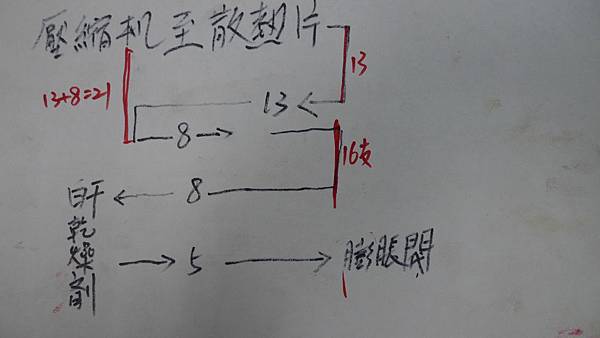 壓縮机至散熱片
13
13+8=21
13
8
16支
8
乾燥劑
5
膨脹閥